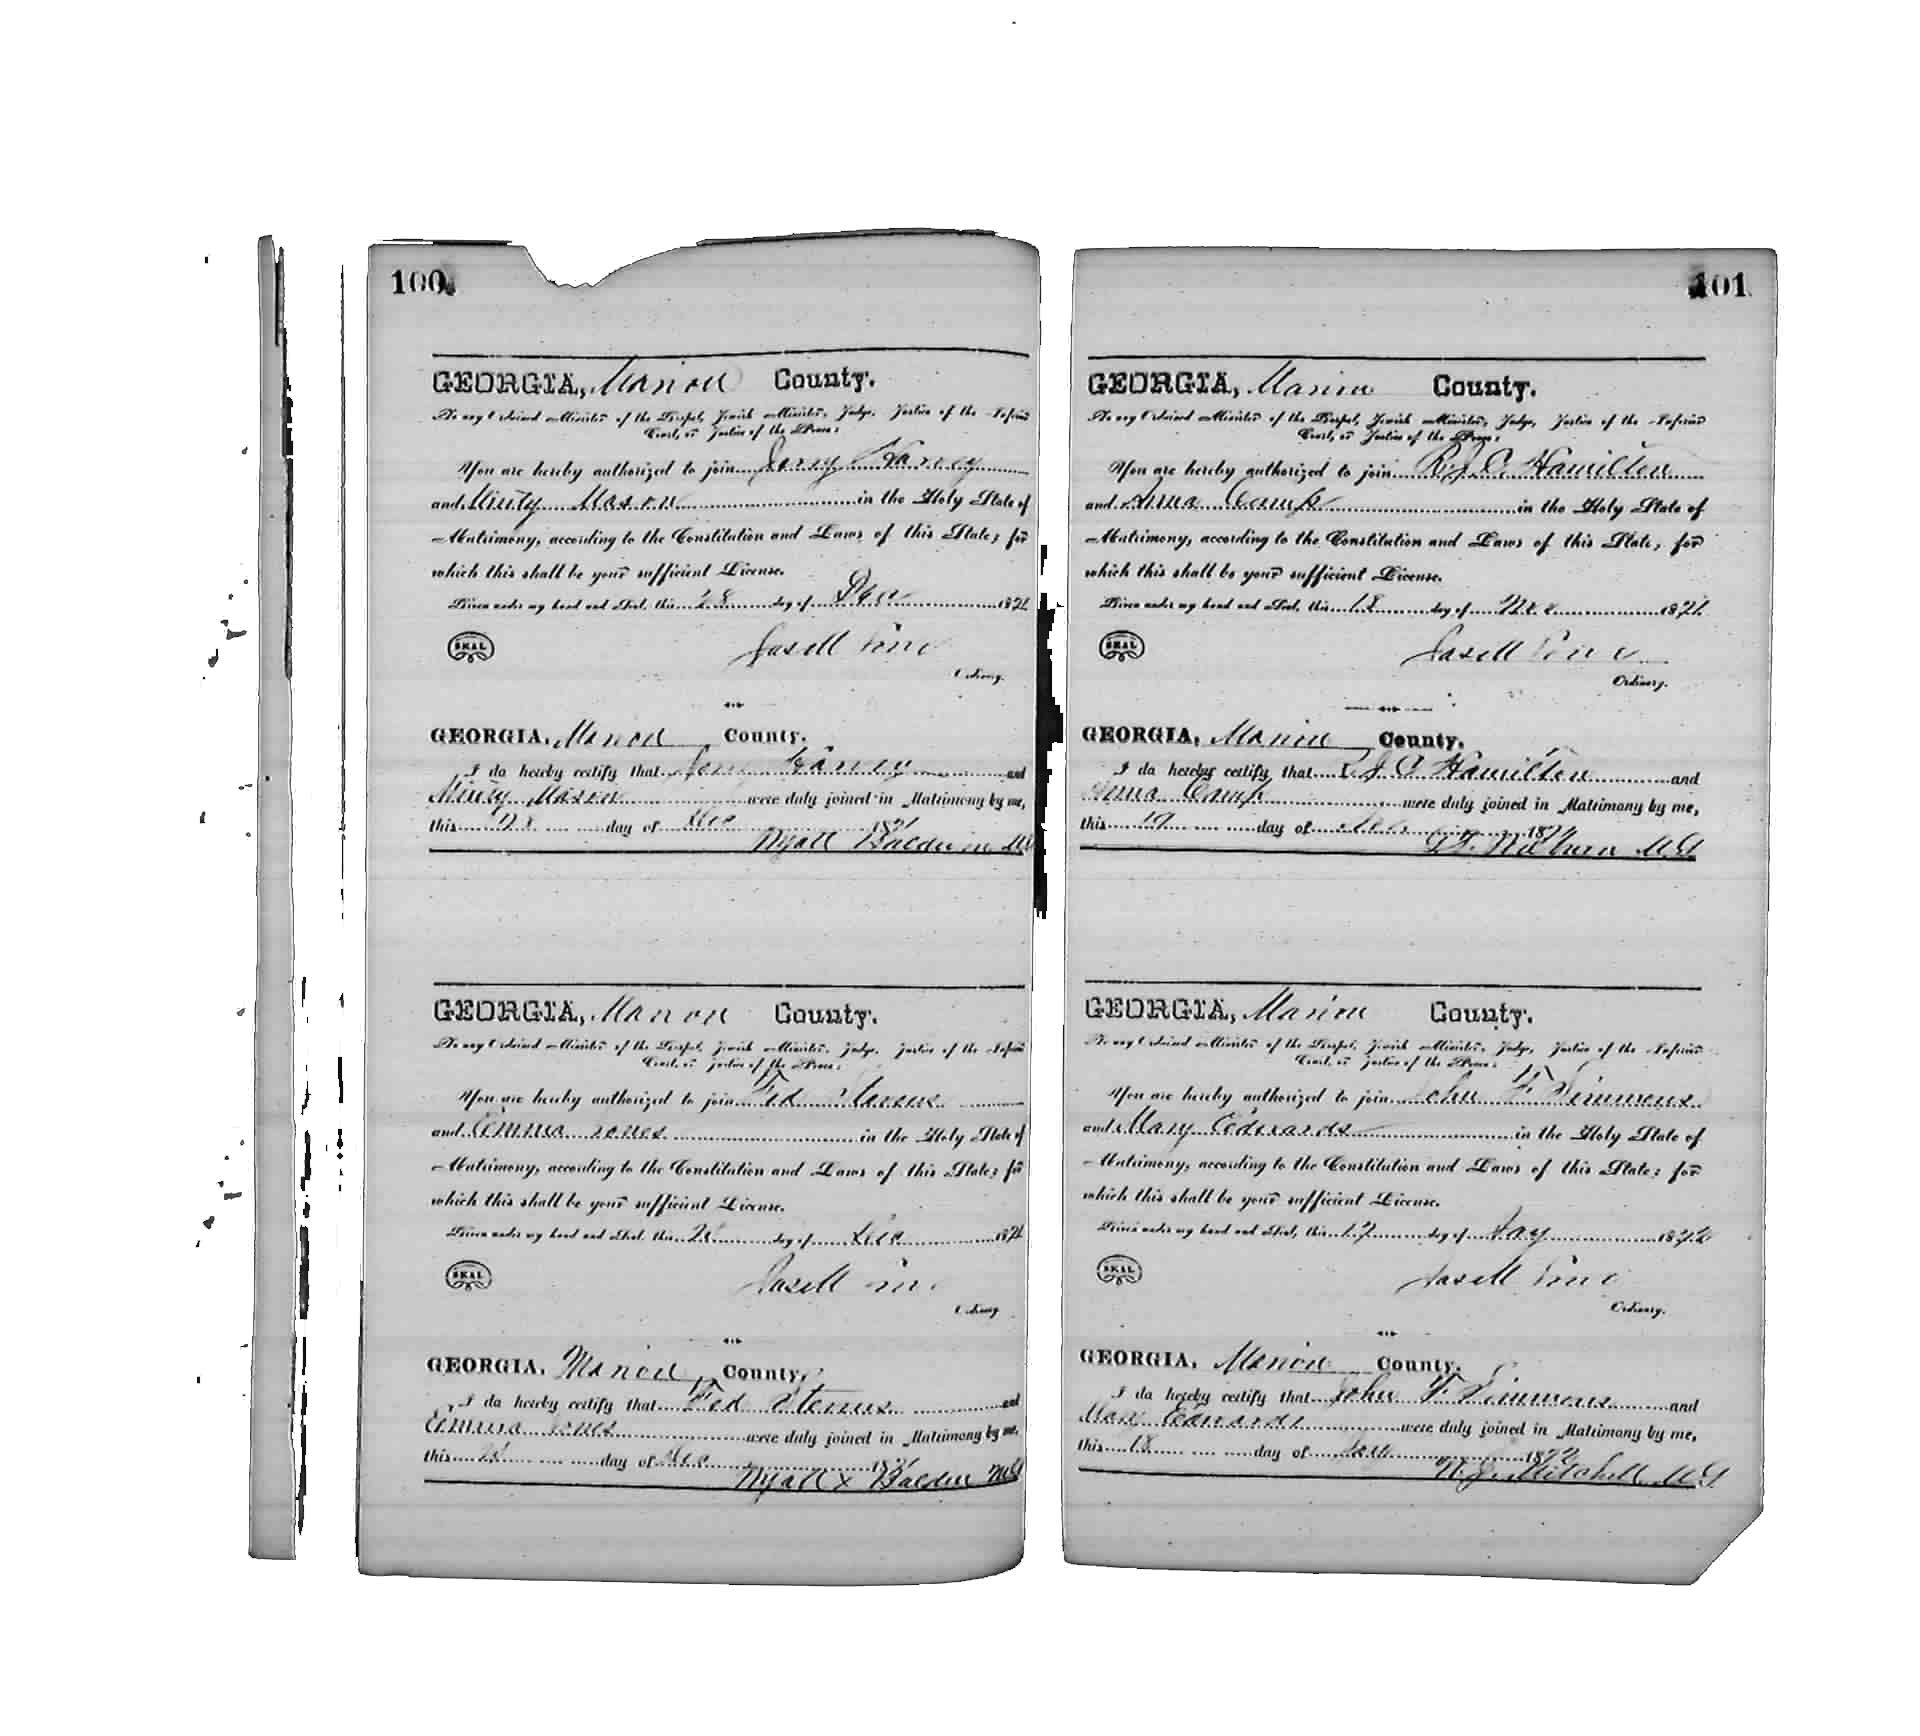 100
GEORGIA, Marion County.
To any Ordained Minister of the Gospel, Jewish Minister, Judge, Justice of the Inferior
Court, or Justice of the Peace:
You are hereby authorized to join Jerry Harvey
and Minty Mason in the Holy State of
Matrimony, according to the Constitution and Laws of this State; for
which this shall be your sufficient License.
Given under my hand and Seal, this 28 day of Dec 1871
SEAL
Ordinary.
GEORGIA, Marion County.
I do hereby certify that Jerry Harvey and
Minty Mason were duly joined in Matrimony by me,
this 28 day of Dec 1871
Wyatt Baldwin MG
GEORGIA, Marion County.
To any Ordained Minister of the Gospel, Jewish Minister, Judge, Justice of the Inferior
Court, or Justice of the Peace:
You are hereby authorized to join Fed Stevens
and Emma Jones in the Holy State of
Matrimony, according to the Constitution and Laws of this State; for
which this shall be your sufficient License.
Given under my hand and Seal, this day of Dec 1871
SEAL
Ordinary.
GEORGIA, Marion County.
I do hereby certify that Fed Stevens and
Emma Jones were duly joined in Matrimony by me,
this day of Dec 1871
Wyatt x Baldwin MG
101
GEORGIA, Marion County.
To any Ordained Minister of the Gospel, Jewish Minister, Judge, Justice of the Inferior
Court, or Justice of the Peace:
You are hereby authorized to join R. J. C. Hamilton
and Anna Camp in the Holy State of
Matrimony, according to the Constitution and Laws of this State, for
which this shall be your sufficient License.
Given under my hand and Seal, this 18 day of 1871
SEAL
Ordinary.
GEORGIA, Marion County.
I do hereby certify that R J C Hamilton and
Anna Camp were duly joined in Matrimony by me,
this 19 day of 1871
M.G
GEORGIA, Marion County.
To any Ordained Minister of the Gospel, Jewish Minister, Judge, Justice of the Inferior
Court, or Justice of the Peace:
You are hereby authorized to join John F Simmons
and Mary Edwards in the Holy State of
Matrimony, according to the Constitution and Laws of this State; for
which this shall be your sufficient License.
Given under my hand and Seal, this 17 day of Jany 1872
SEAL
Ordinary.
GEORGIA, Marion County.
I do hereby certify that John F Simmons and
Mary Edwards were duly joined in Matrimony by me,
this 18 day of Jan 1872
W. J. Mitchell M.G